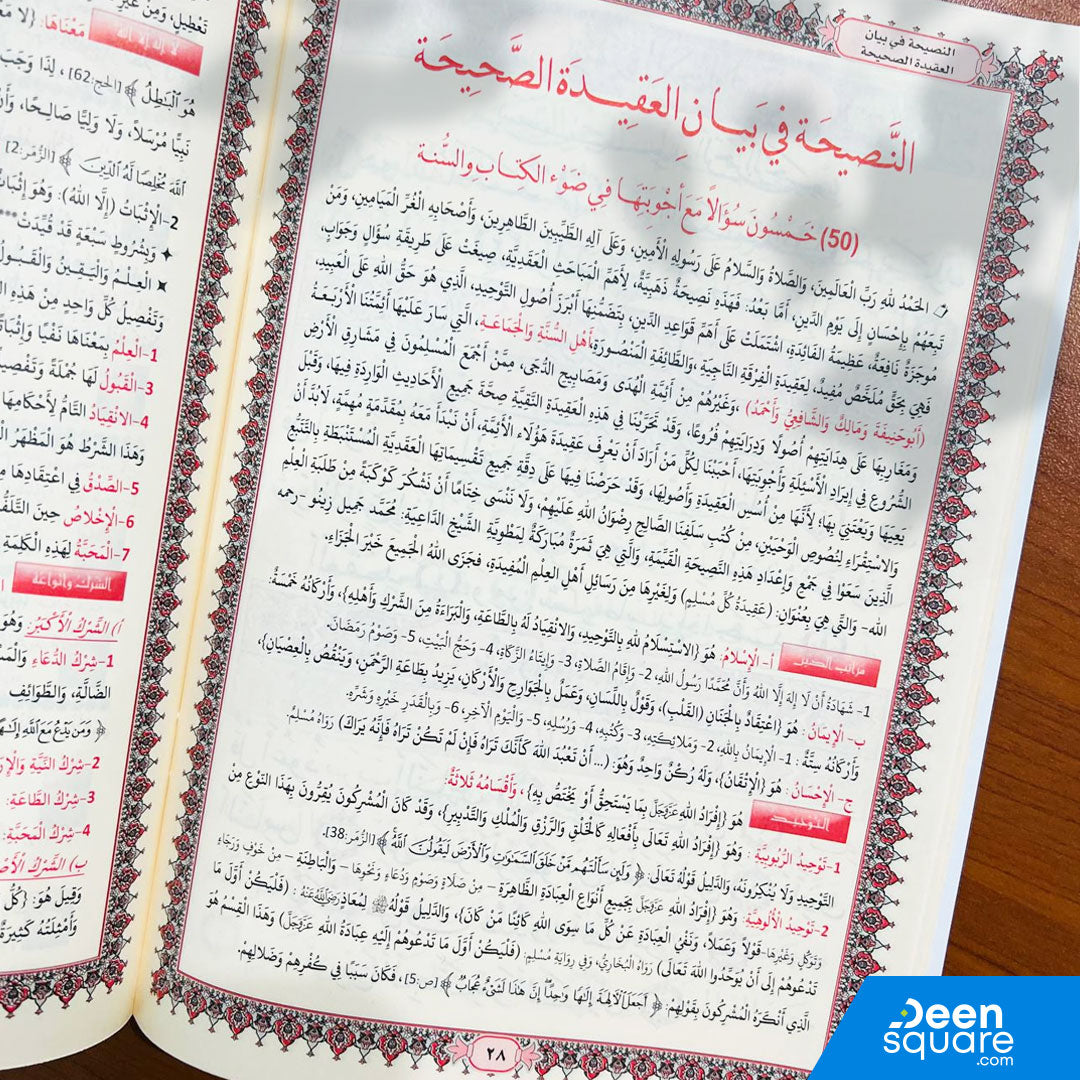 النصيحة في بيان
العقيدة الصحيحة
النَّصيحَة في بَيـانِ العَقِيـدَة الصَّحِيحَة
(50) خَمْسُونَ سُؤَالًا مَعَ أَجْوِبَتِهَا فِي ضَوْءِ الكِتَابِ والسُّنة
الحَمْدُ للهِ رَبِّ العَالَمِينَ، وَالصَّلَاةُ وَالسَّلَامُ عَلَى رَسُولِهِ الأَمِينِ، وَعَلَى آلِهِ الطَّيِّبِينَ الطَّاهِرِينَ، وَأَصْحَابِهِ الْغُرِّ الْمَيَامِينِ، وَمَنْ
تَبِعَهُمْ بِإِحْسَانٍ إِلَى يَوْمِ الدِّينِ، أَمَّا بَعْدُ: فَهَذِهِ نَصِيحَةٌ ذَهَبِيَّةٌ، لِأَهَمِّ الْمَبَاحَثِ الْعَقَدِيَّةِ، صِيغَتْ عَلَى طَرِيقَةِ سُؤَالٍ وَجَوَابٍ،
مُوجَزَةٌ نَافِعَةٌ، عَظِيمَةُ الفَائِدَةِ، اشْتَمَلَتْ عَلَى أَهَمِّ قَوَاعِدِ الدِّينِ، بِتَضَمُّنِهَا أَبْرَزَ أُصُولِ التَّوْحِيدِ، الَّذِي هُوَ حَقُّ اللهِ عَلَى الْعَبِيدِ،
فَهِيَ بِحَقٍّ مُلَخَّصٌ مُفِيدٌ، لِعَقِيدَةِ الْفِرْقَةِ النَّاجِيَةِ، وَالطَّائِفَةِ الْمَنْصُورَةِ، أَهْلِ السُّنَّةِ وَالْجَمَاعَةِ، الَّتِي سَارَ عَلَيْهَا أَئِمَّتُنَا الْأَرْبَعَةُ
(أَبُوحَنِيفَةَ وَمَالِكٌ وَالشَّافِعِيُّ وَأَحْمَدُ)، وَغَيْرُهُمْ مِنْ أَئِمَّةِ الْهُدَى وَمَصَابِيحِ الدُّجَى، مِمَّنْ أَجْمَعَ الْمُسْلِمُونَ فِي مَشَارِقِ الْأَرْضِ
وَمَغَارِبِهَا عَلَى هِدَايَتِهِمْ وَدِرَايَتِهِمْ أُصُولًا وَفُرُوعًا، وَقَدْ تَحَرَّيْنَا فِي هَذِهِ الْعَقِيدَةِ النَّقِيَّةِ صِحَّةَ جَمِيعِ الْأَحَادِيثِ الْوَارِدَةِ فِيهَا، وَقَبْلَ
الشُّرُوعِ فِي إِيرَادِ الْأَسْئِلَةِ وَأَجْوِبَتِهَا، أَحْبَبْنَا لِكُلِّ مَنْ أَرَادَ أَنْ يَعْرِفَ عَقِيدَةَ هَؤُلَاءِ الْأَئِمَّةِ، أَنْ نَبْدَأَ مَعَهُ بِمُقَدِّمَةٍ مُهِمَّةٍ، لَابُدَّ أَنْ
يَعِيَهَا وَيَعْتَنِيَ بِهَا؛ لِأَنَّهَا مِنْ أُسُسِ الْعَقِيدَةِ وَأُصُولِهَا، وَقَدْ حَرَصْنَا فِيهَا عَلَى دِقَّةِ جَمِيعِ تَقْسِيمَاتِهَا الْعَقَدِيَّةِ الْمُسْتَنْبَطَةِ بِالتَّتَبُّعِ
وَالاسْتِقْرَاءِ لِنُصُوصِ الْوَحْيَيْنِ، مِنْ كُتُبِ سَلَفِنَا الصَّالِحِ رِضْوَانُ اللهِ عَلَيْهِمْ، وَلَا نَنْسَى خِتَامًا أَنْ نَشْكُرَ كَوْكَبَةً مِنْ طَلَبَةِ الْعِلْمِ
الَّذِينَ سَعَوْا فِي جَمْعِ وَإِعْدَادِ هَذِهِ النَّصِيحَةِ الْقَيِّمَةِ، وَالَّتِي هِيَ ثَمَرَةٌ مُبَارَكَةٌ لِمَطْوِيَّةِ الشَّيْخِ الدَّاعِيَةِ: مُحَمَّد جَمِيل زينو -رحمه
الله- وَالتِي هِيَ بِعُنْوَانِ: (عَقِيدَةُ كُلِّ مُسْلِمٍ) وَلِغَيْرِهَا مِنَ رَسَائِلِ أَهْلِ الْعِلْمِ الْمُفِيدَةِ، فَجَزَى اللهُ الْجَمِيعَ خَيْرَ الْجَزَاءِ.
مراتب الدين أ- الْإِسْلَامُ: هُوَ {الاسْتِسْلَامُ للهِ بِالتَّوْحِيدِ، وَالانْقِيَادُ لَهُ بِالطَّاعَةِ، وَالْبَرَاءَةُ مِنَ الشِّرْكِ وَأَهْلِهِ}، وَأَرْكَانُهُ خَمْسَةٌ:
1- شَهَادَةُ أَنْ لَا إِلَهَ إِلَّا اللهُ وَأَنَّ مُحَمَّدًا رَسُولُ اللهِ، 2- وَإِقَامُ الصَّلَاةِ، 3- وَإِيتَاءُ الزَّكَاةِ، 4- وَحَجُّ الْبَيْتِ، 5- وَصَوْمُ رَمَضَانَ.
ب- الْإِيمَانُ: هُوَ {اعْتِقَادٌ بِالْجَنَانِ (القَلْبِ)، وَقَوْلٌ بِاللِّسَانِ، وَعَمَلٌ بِالْجَوَارِحِ وَالْأَرْكَانِ، يَزِيدُ بِطَاعَةِ الرَّحْمَنِ، وَيَنْقُصُ بِالْعِصْيَانِ}،
وَأَرْكَانُهُ سِتَّةٌ: 1- الْإِيمَانُ بِاللهِ، 2- وَمَلَائِكَتِهِ، 3- وَكُتُبِهِ، 4- وَرُسُلِهِ، 5- وَالْيَوْمِ الْآخِرِ، 6- وَبِالْقَدَرِ خَيْرِهِ وَشَرِّهِ.
ج- الْإِحْسَانُ: هُوَ {الْإِتْقَانُ}، وَلَهُ رُكْنٌ وَاحِدٌ وَهُوَ: (... أَنْ تَعْبُدَ اللهَ كَأَنَّكَ تَرَاهُ فَإِنْ لَمْ تَكُنْ تَرَاهُ فَإِنَّهُ يَرَاكَ) رَوَاهُ مُسْلِم.
التوحيد هُوَ {إِفْرَادُ اللهِ عَزَّوَجَلَّ بِمَا يَسْتَحِقُّ أَوْ يَخْتَصُّ بِهِ}، وَأَقْسَامُهُ ثَلَاثَةٌ:
1- تَوْحِيدُ الرُّبُوبِيَّةِ: وَهُوَ {إِفْرَادُ اللهِ تَعَالَى بِأَفْعَالِهِ كَالْخَلْقِ وَالرَّزْقِ وَالْمُلْكِ وَالتَّدْبِيرِ}، وَقَدْ كَانَ الْمُشْرِكُونَ يُقِرُّونَ بِهَذَا النَّوْعِ مِنَ
التَّوْحِيدِ وَلَا يُنْكِرُونَهُ، وَالدَّلِيلُ قَوْلُهُ تَعَالَى: ﴿ وَلَئِن سَأَلْتَهُم مَّنْ خَلَقَ ٱلسَّمَٰوَٰتِ وَٱلْأَرْضَ لَيَقُولُنَّ ٱللَّهُ ﴾ [الزُّمَر:38].
2- تَوْحِيدُ الْأُلُوهِيَّةِ: وَهُوَ {إِفْرَادُ اللهِ عَزَّوَجَلَّ بِجَمِيعِ أَنْوَاعِ الْعِبَادَةِ الظَّاهِرَةِ – مِنْ صَلَاةٍ وَصَوْمٍ وَدُعَاءٍ وَنَحْوِهَا – وَالْبَاطِنَةِ – مِنْ خَوْفٍ وَرَجَاءٍ
وَتَوَكُّلٍ وَغَيْرِهَا- قَوْلًا وَعَمَلًا، وَنَفْيُ الْعِبَادَةِ عَنْ كُلِّ مَا سِوَى اللهِ كَائِنًا مَنْ كَانَ}، وَالدَّلِيلُ قَوْلُهُ ﷺ لِمُعَاذٍ رَضِيَاللَّهُعَنْهُ: (فَلْيَكُنْ أَوَّلَ مَا
تَدْعُوهُمْ إِلَى أَنْ يُوَحِّدُوا اللهَ تَعَالَى) رَوَاهُ الْبُخَارِيُّ، وَفِي رِوَايَةِ مُسْلِمٍ: (فَلْيَكُنْ أَوَّلَ مَا تَدْعُوهُمْ إِلَيْهِ عِبَادَةُ اللهِ عَزَّوَجَلَّ) وَهَذَا الْقِسْمُ هُوَ
الَّذِي أَنْكَرَهُ الْمُشْرِكُونَ بِقَوْلِهِمْ: ﴿ أَجَعَلَ ٱلْآلِهَةَ إِلَٰهًا وَٰحِدًا إِنَّ هَٰذَا لَشَىْءٌ عُجَابٌ ﴾ [ص:5]، فَكَانَ سَبَبًا فِي كُفْرِهِمْ وَضَلَالِهِمْ.
٢٨
تَعْطِيلٍ، وَمِنْ غَيْرِ
لا إله إلا الله مَعْنَاهَا: {لَا
هُوَ ٱلْبَٰطِلُ ﴾ [الحج:62]، لِذَا وَجَبَ
نَبِيًّا مُرْسَلًا، وَلَا وَلِيًّا صَالِحًا، وَأَنَّ
ٱللَّهَ مُخْلِصًا لَّهُ ٱلدِّينَ ﴾ [الزُّمَر:2]
2- الْإِثْبَاتُ (إِلَّا اللهُ): وَهُوَ إِثْبَاتُ
وَبِشُرُوطٍ سَبْعَةٍ قَدْ قُيِّدَتْ***
الْعِلْمُ وَالْيَقِينُ وَالْقَبُولُ
وَتَفْصِيلُ كُلِّ وَاحِدٍ مِنْ هَذِهِ
1- الْعِلْمُ بِمَعْنَاهَا نَفْيًا وَإِثْبَاتًا
3- الْقَبُولُ لَهَا جُمْلَةً وَتَفْصِيلًا
4- الانْقِيَادُ التَّامُّ لِأَحْكَامِهَا
وَهَذَا الشَّرْطُ هُوَ الْمَظْهَرُ
5- الصِّدْقُ فِي اعْتِقَادِهَا
6- الْإِخْلَاصُ حِينَ التَّلَفُّظِ
7- الْمَحَبَّةُ لِهَذِهِ الْكَلِمَةِ
الشرك وأنواعه
أ) الشِّرْكُ الْأَكْبَرُ: وَهُوَ
1- شِرْكُ الدُّعَاءِ
الضَّالَّةِ، وَالطَّوَائِفِ
﴿ وَمَن يَدْعُ مَعَ ٱللَّهِ إِلَٰهًا
2- شِرْكُ النِّيَّةِ
3- شِرْكُ الطَّاعَةِ:
4- شِرْكُ الْمَحَبَّةِ:
ب) الشِّرْكُ الْأَصْغَرُ
وَقِيلَ هُوَ: {كُلُّ
وَأَمْثِلَتُهُ كَثِيرَةٌ
Deen
square
.com